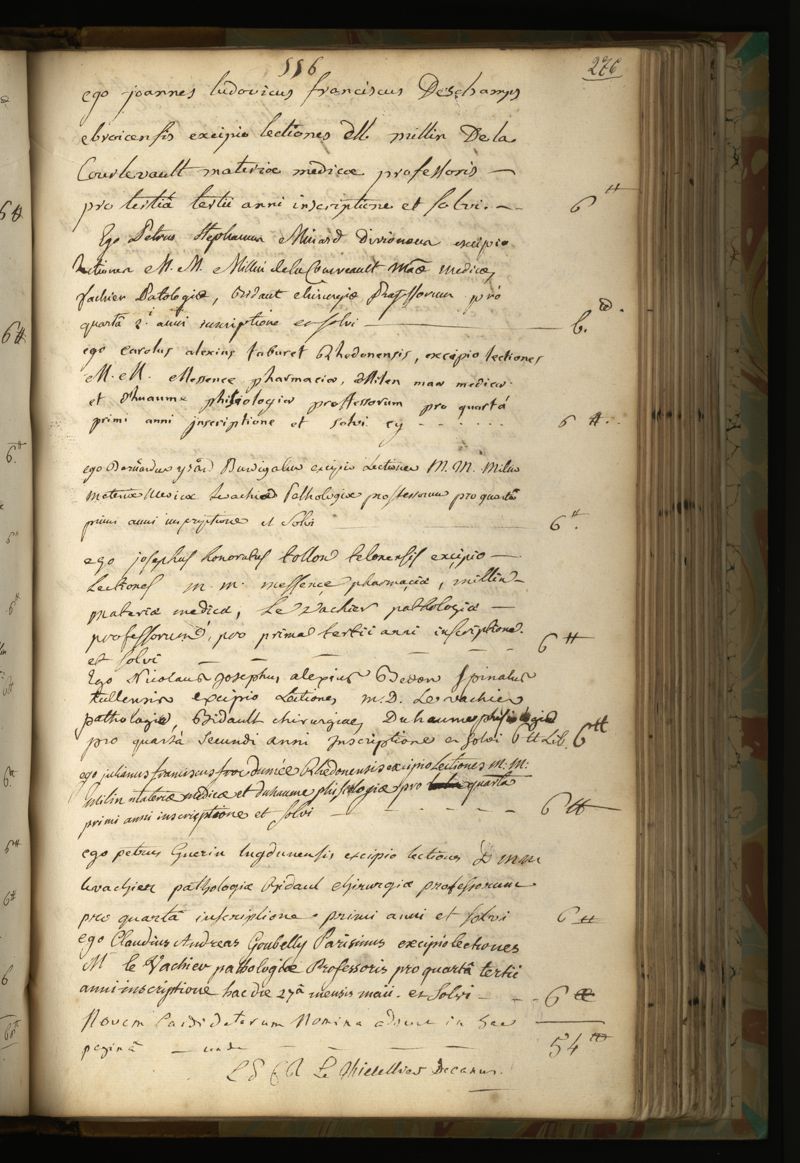 556
276
ego joannes ludovicus franciscus Deschamps
ebroicensis excipio lectiones dd. millin De la
Courlevault materiæ medicæ professoris —
pro tertiâ tertii anni inscriptione et solvi. — 6 ₶
Ego Petrus Stephanus Divionæus excipio
lectiones M. M. Millin de la Courveault Maæ Medicæ,
Patologiæ, Bidaut chirurgiæ Professorum pro
quartâ 2.i anni inscriptione et solvi — 6. ₶
ego carolus alexius taburet Rhedonensis, excipio lectiones
M. M. Messence pharmaciæ, Milen maæ medicæ
et Duhaume phisiologiæ professorum pro quartâ
primi anni inscriptione et solvi cy - - - - - - 6 ₶.
ego Burdigalus excipio Lectiones M. M. Milin
Materiæ Medicæ Pathologiæ professorum pro quartâ
primi anni inscriptione et Solvi — 6 ₶.
ego josephus honoratus tollon telonensis excipio —
Lectiones m. m. messence pharmaciæ, millin
materiæ medicæ, Le vachier pathologiæ —
professorum, pro prima tertii anni inscriptione.
et solvi — — — — — 6 ₶
Ego Nicolaus Josephus alexius Spinalus
tullensis excipio Lectiones m.D. Le vachier
pathologiæ, Bidault chirurgiæ, Duhaume phisiologiæ
pro quartâ Secundi anni Inscriptione et solvi 6 ₶ Lib. 6 ₶
ego julianus franciscus Rhedonensis excipio Lectiones M. M.
Milin materiæ medicæ et duhaume phisiologiæ pro quarta
primi anni inscriptione et solvi — - - - - 6 ₶
ego petrus Guerin lugdunensis excipio lectiones D mm
levachier pathologiæ Bidaul chirurgiæ professorum
pro quartâ inscriptione primi anni et solvi 6 ₶
ego Claudius Andreas Goubelly Parisinus excipio lectiones
M le Vachier pathologiæ Professoris pro quartâ tertii
anni inscriptione hac die 27â mensis maii. et Solvi — - - 6 ₶
Novem Candidatorum Nomina adsunt in hac
paginâ — unde — — — 54 ₶
L § 6 Le Thieullier Decanus.